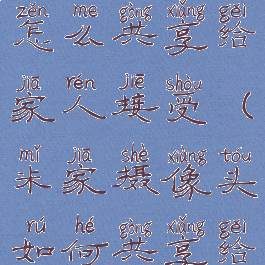 zěn me gòng xiǎng gěi
怎么共享给
jiā rén jiē shòu
家人接受（
mǐ jiā shè xiàng tóu
米家摄像头
rú hé gòng xiǎng gěi
如何共享给